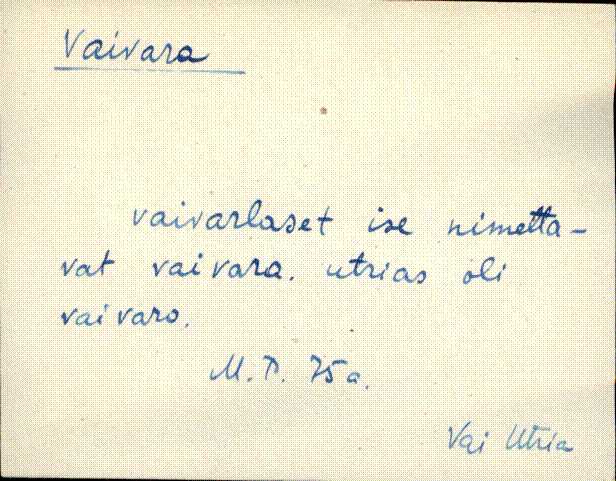 Vaivara
vaivarlaset ise nimetta-
vat vaivara. utrias oli
vaivaro.
M. P. 75 a.
Vai Utria